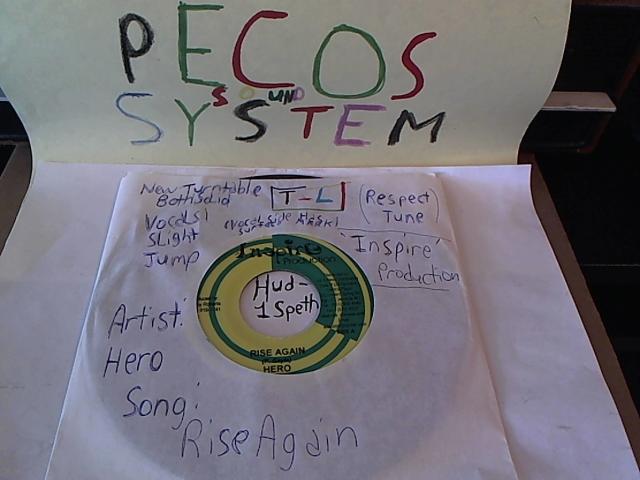 PECOS
SOUND
SYSTEM
New Turntable
Both Sold
T-L
(Respect
Tune
Vocals 1
SLight
Jump
'Inspire'
Production
Inspire
PRODUCTION
Hud-
1 Speth
RISE AGAIN
HERO
Artist:
Hero
Song:
Rise Again